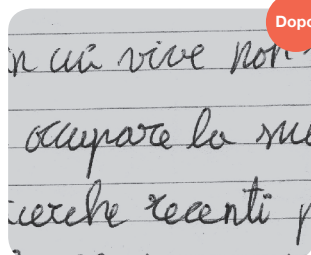 Dopo
in cui vive non
occupare la sue
icerche recenti p